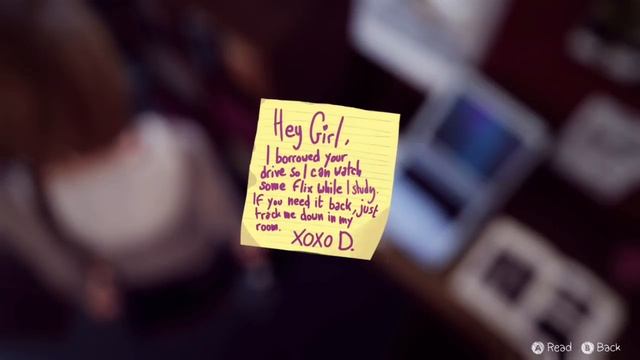 Hey Girl,
I borrowed your
drive so I can watch
some Flix while I study.
If you need it back, just
track me down in my
room.
XOXO D.
A Read B Back